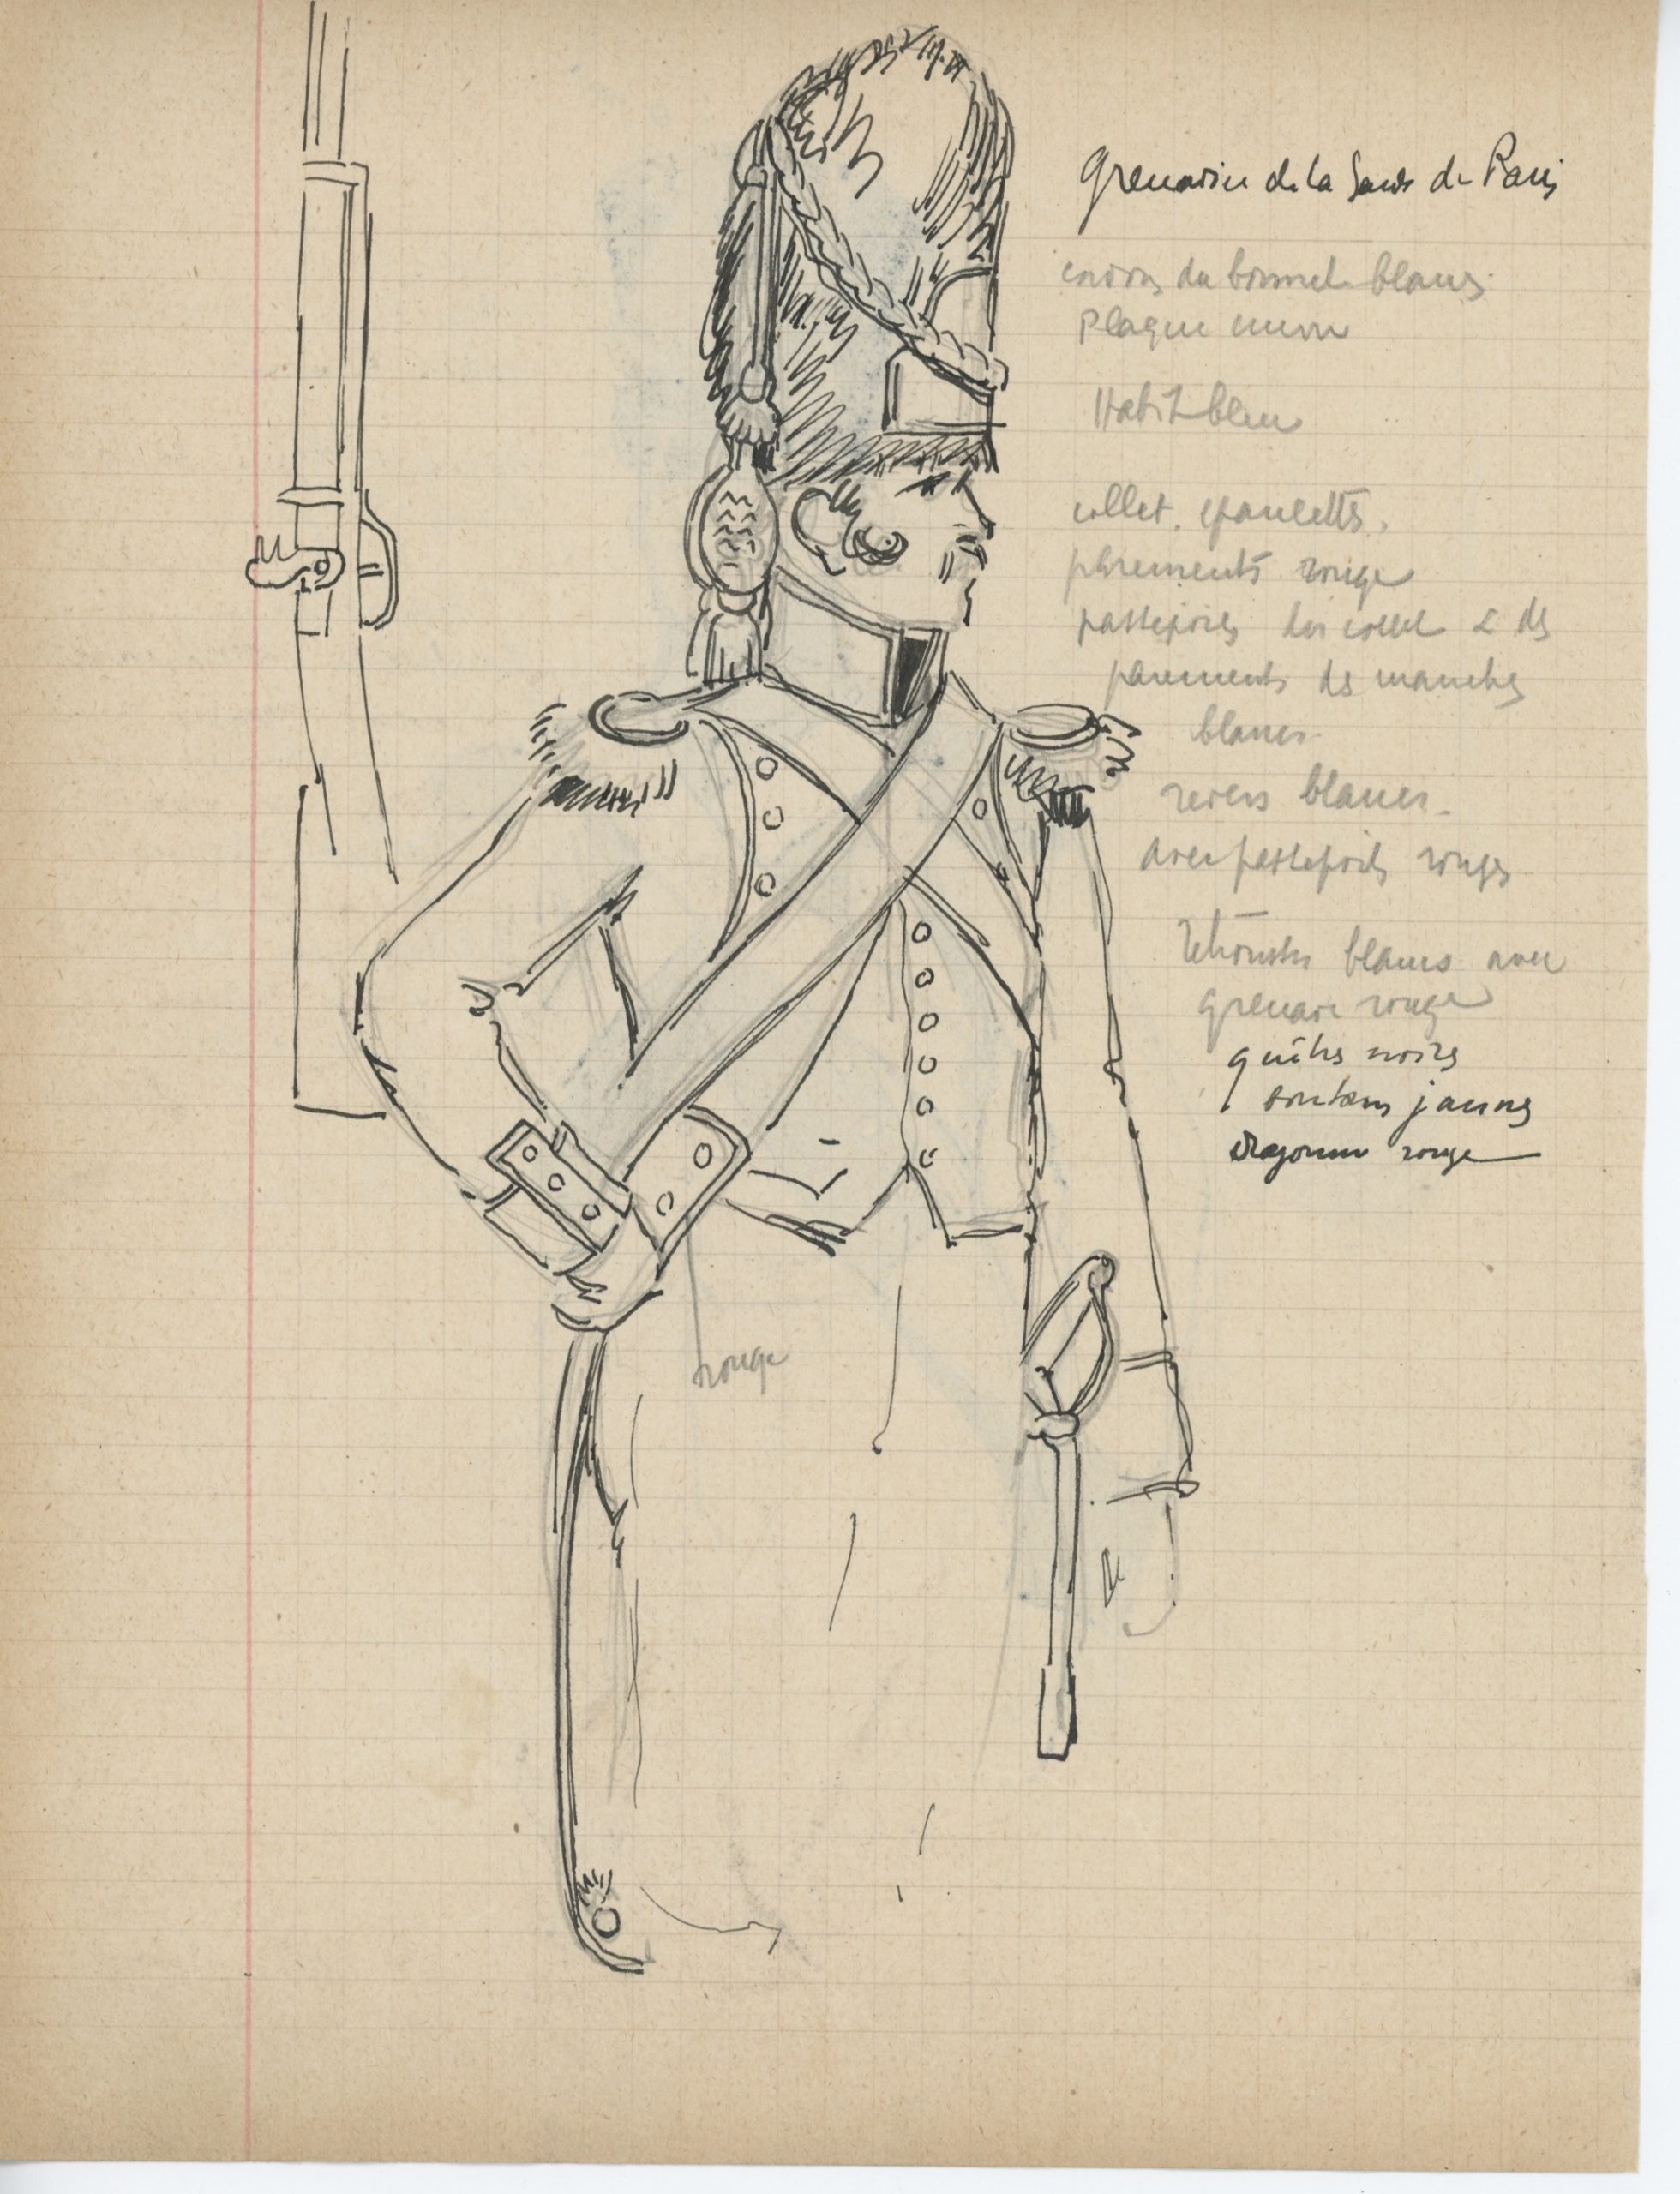 Grenadier de la Garde de Paris
cordon du bonnet blancs
Plaque cuivre
Habit bleu
collet. epaulettes.
parements rouge
passepoils du collet & des
parements de manches
blancs
revers blancs
avec passepoils rouges
retroussis blancs avec
grenade rouge
guêtres noires
boutons jaunes
dragonne rouge
rouge